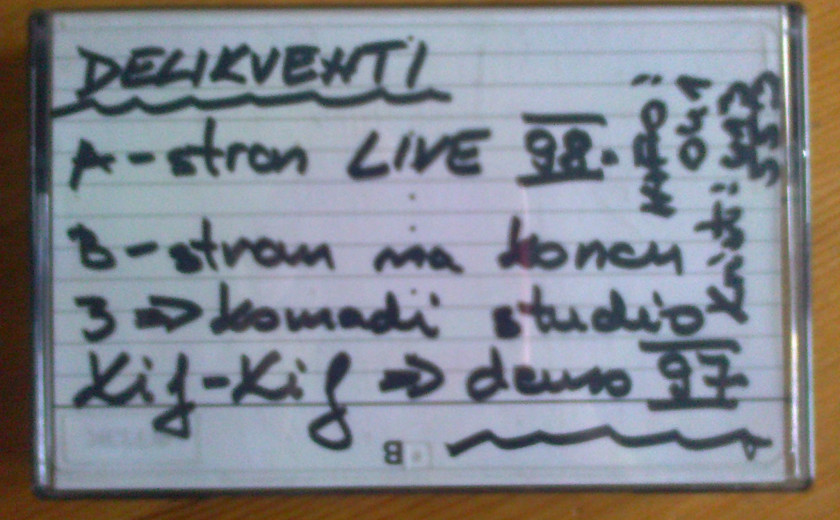 DELIKVENTI
A-stran LIVE 98.
B-stran na koncu
3 ⇒ komadi studio
Kif-Kif ⇒ demo 97
INFO:
041
Kristi:
B